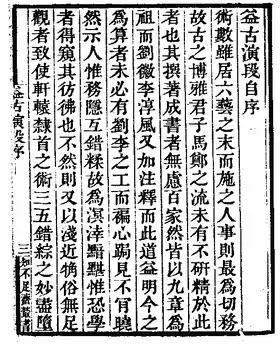 益古演段自序
術數雖居六藝之末而施之人事則最為切務
故古之博雅君子馬鄭之流未有不研精於此
者也其撰著成書者無慮百家然皆以九章為
祖而劉徽李淳風又加注釋而此道益明今之
為算者未必有劉李之工而褊心跼見不肯曉
然示人惟務隱互錯糅故為溟涬黯黮惟恐學
者得窺其彷彿也不然則又以淺近觕俗無足
觀者致使軒轅隸首之術三五錯綜之妙盡墮
益古演段序
三
知不足齋叢書